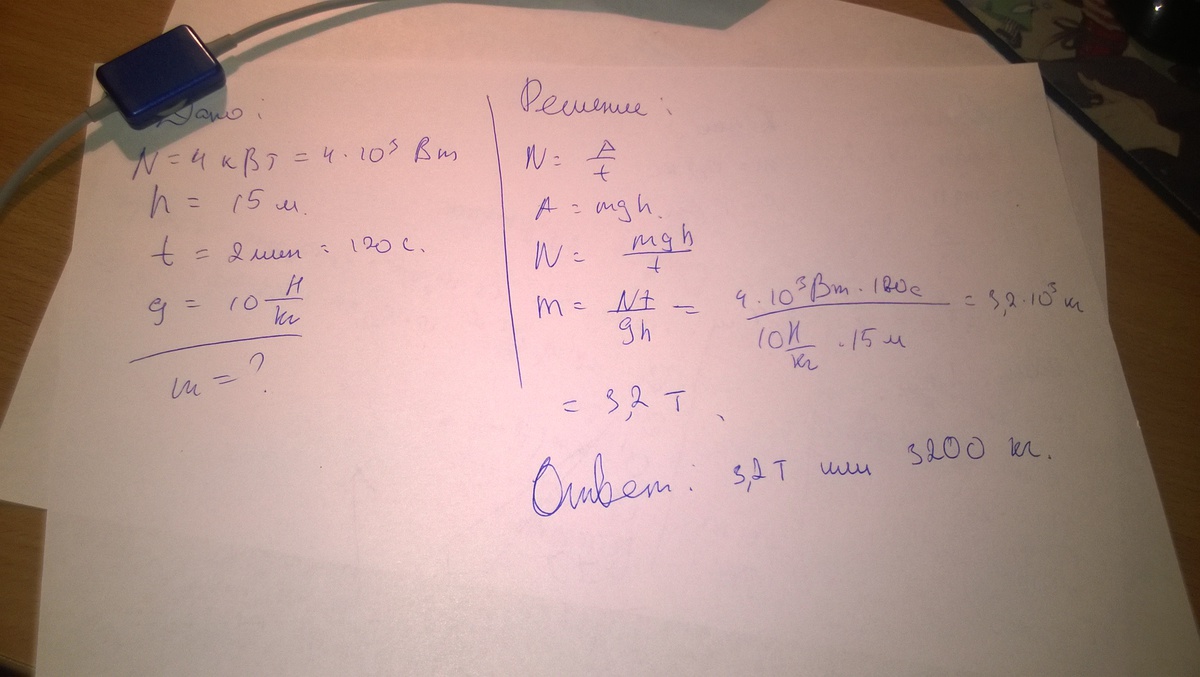 Дано:
N = 4 кВт = 4 · 10³ Вт
h = 15 м.
t = 2 мин = 120 с.
g = 10 Н/кг
m = ?
Решение:
N = A/t
A = mgh.
N = mgh/t
m = Nt/gh = 4 · 10³ Вт · 120с / 10 Н/кг · 15 м = 3,2 · 10³ кг
= 3,2 т.
Ответ: 3,2 т или 3200 кг.